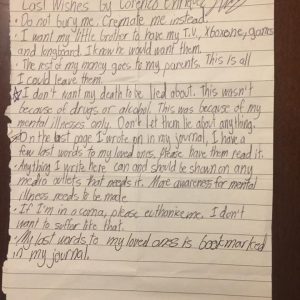 Last Wishes by
• Do not bury me. Cremate me instead.
• I want my little brother to have my T.V., Xbox one, games
and keyboard. I know he would want them.
• The rest of my money goes to my parents. This is all
I could leave them.
I don't want my death to be lied about. This wasn't
because of drugs or alcohol. This was because of my
mental illnesses only. Don't let them lie about anything.
On the last page I wrote on in my journal, I have a
few last words to my loved ones. Please have them read it.
• Anything I write here can and should be shown on any
media outlets that needs it. More awareness for mental
illness needs to be made.
• If I'm in a coma, please euthanize me. I don't
want to suffer like that.
• My last words to my loved ones is bookmarked
in my journal.